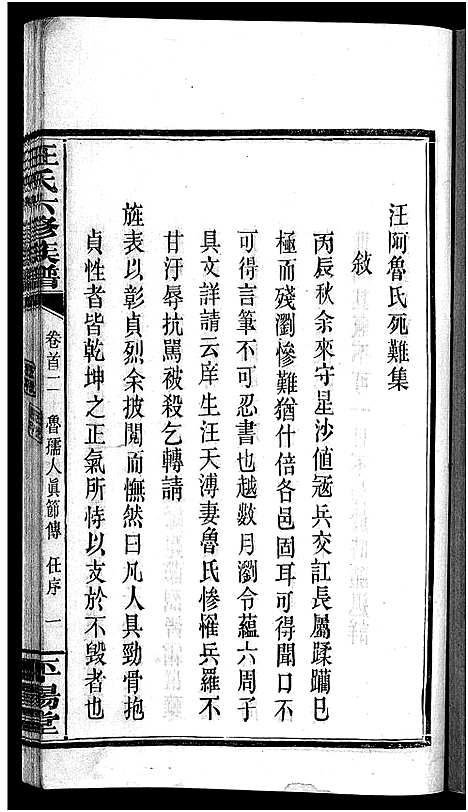 汪阿魯氏死難集
敘
丙辰秋余來守星沙值寇兵交訌長屬蹂躪已
極而殘瀏慘難猶什倍各邑固耳可得聞口不
可得言筆不可忍書也越數月瀏令蘊六周子
具文詳請云庠生汪天溥妻魯氏慘罹兵羅不
甘汙辱抗罵被殺乞轉請
旌表以彰貞烈余披閱而憮然曰凡人具勁骨抱
貞性者皆乾坤之正氣所恃以支於不毀者也
汪氏六修族譜
卷首二
魯孺人眞節傳
任序
一
平陽堂